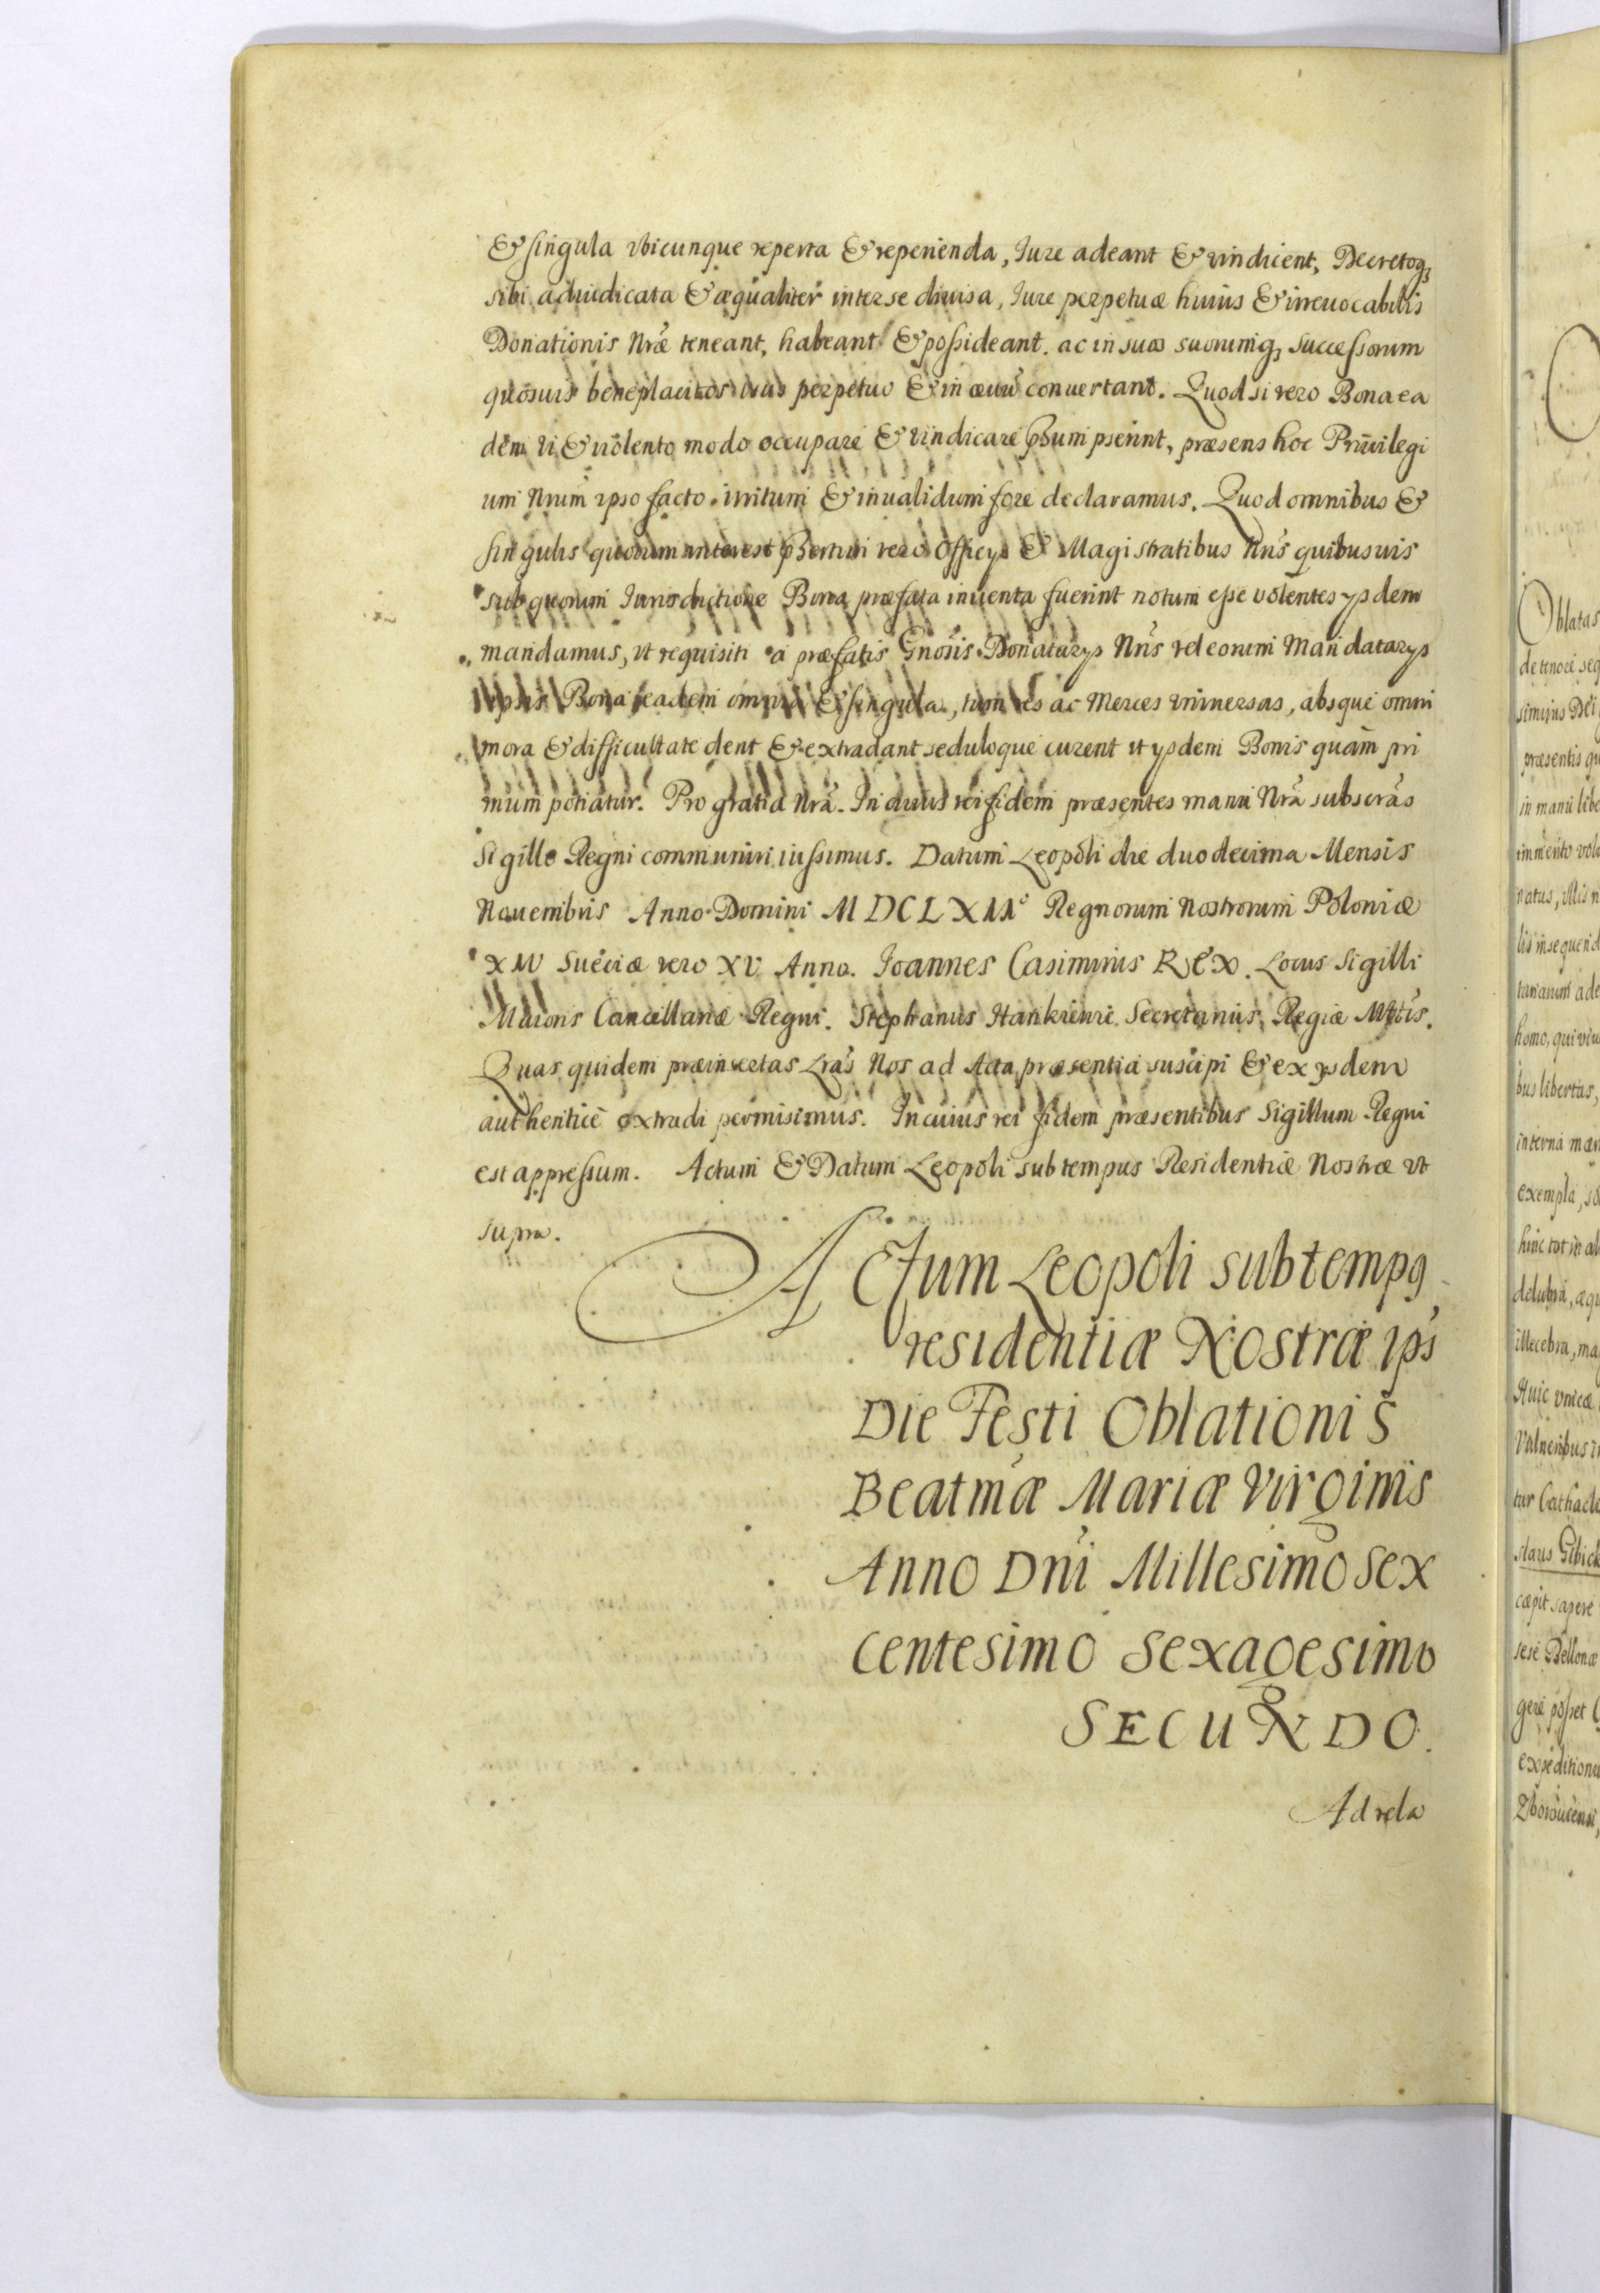 & singula vbicunque reperta & reperienda, Iure adeant & vindicent, Decretoq3
sibi adiudicata & æqualiter inter se diuisa, Iure perpetuæ huius & irreuocabilis
Donationis Nræ teneant, habeant & possideant. ac in suos suorumq3 successorum
quosuis beneplacitos vsus perpetuo & in æuũ conuertant. Quod si vero Bona ea
dem vi & violento modo occupare & vindicare præsumpserint, præsens hoc Priuilegi
um Nrum ipso facto irritum & inualidum fore declaramus. Quod omnibus &
singulis quorum interest præsertim vero Officys & Magistratibus Nris quibusuis
sub quorum Iurisdictione Bona præfata inuenta fuerint notum esse volentes ysdem
mandamus, vt requisiti a præfatis Gnosis Donatarys Nris vel eorum Mandatarys
ipsis Bona eadem omnia & singula, tum res ac Merces vniuersas, absque omni
mora & difficultate dent & extradant seduloque curent vt ysdem Bonis quam pri
mum potiatur. Pro gratia Nra. In cuius rei fidem præsentes manu Nra subscras
Sigillo Regni communiri iussimus. Datum Leopoli die duodecima Mensis
Nouembris Anno Domini MDCLXII° Regnorum Nostrorum Poloniæ
XIV Sueciæ vero XV Anno. Ioannes Casimirus REX. Locus Sigilli
Maioris Cancellariæ Regni. Stephanus Hankiewic Secretarius Regiæ Mttis.
Quas quidem præinsertas Lras Nos ad Acta præsentia suscipi & ex ysdem
authentice extradi permisimus. In cuius rei fidem præsentibus Sigillum Regni
est appressum. Actum & Datum Leopoli sub tempus Residentiæ Nostræ vt
supra.
ACtum Leopoli sub temp9
residentiæ Nostræ ips
Die Festi Oblationis
Beatmæ Mariæ Virginis
Anno Dni Millesimo sex
centesimo sexagesimo
SECUNDO.
Ad rela
Oblatas
de tenore seq
simijns Dei
præsentis qu
in manu libe
natus, illis n
lis insequend
homo, qui viu
bus libertas,
interna mæn
exempla, so
hinc tot in al
delubra, æqu
illecebra, ma
Huic vnicæ
Vulneribus in
slaus Gibick
cæpit sapere
sese Bellonæ
gere posset
expeditione